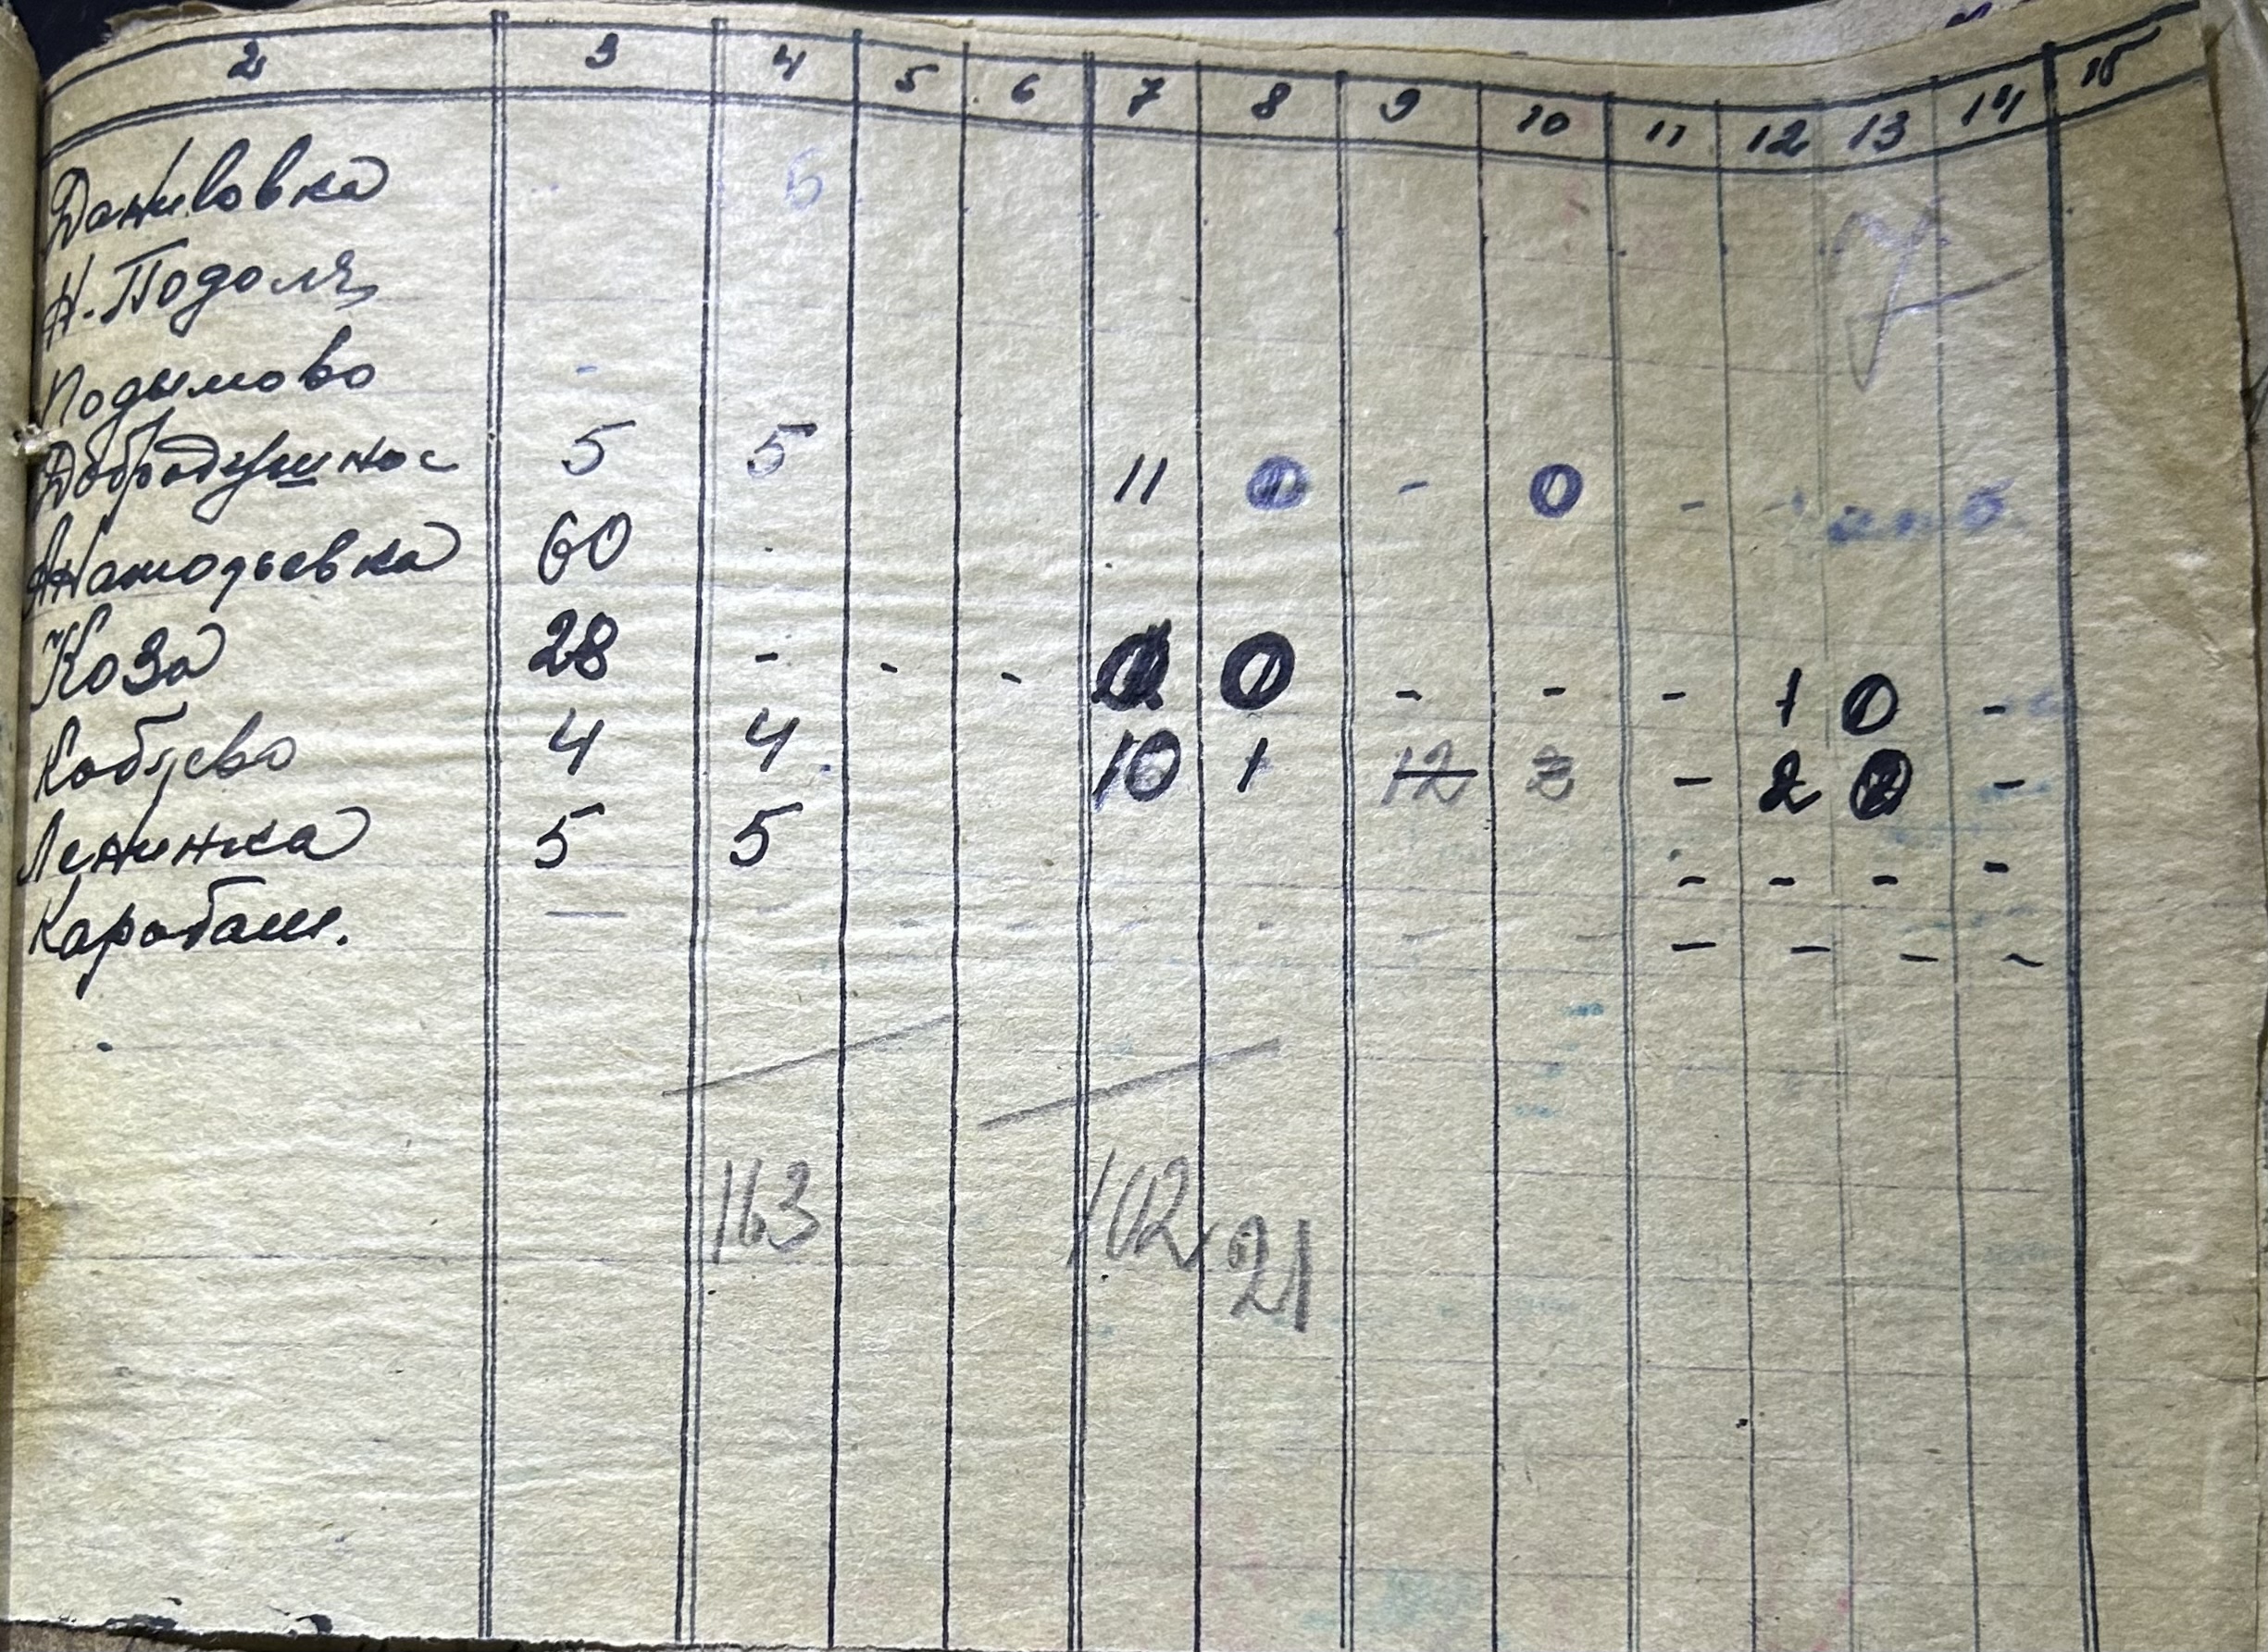 2 3 4 5 6 7 8 9 10 11 12 13 14 15
Даниловка 6
Н. Подолц
Подымово -
Добродушнос 5 5 11 0 - 0 - -
Анатольевка 60
Коза 28 - - - 0 0 - - - 1 0 -
Кобцево 4 4 10 1 12 2 - 2 0 -
Ленинка 5 5 - - - -
Карабаш. — - - - - - - - - - -
163 102 21